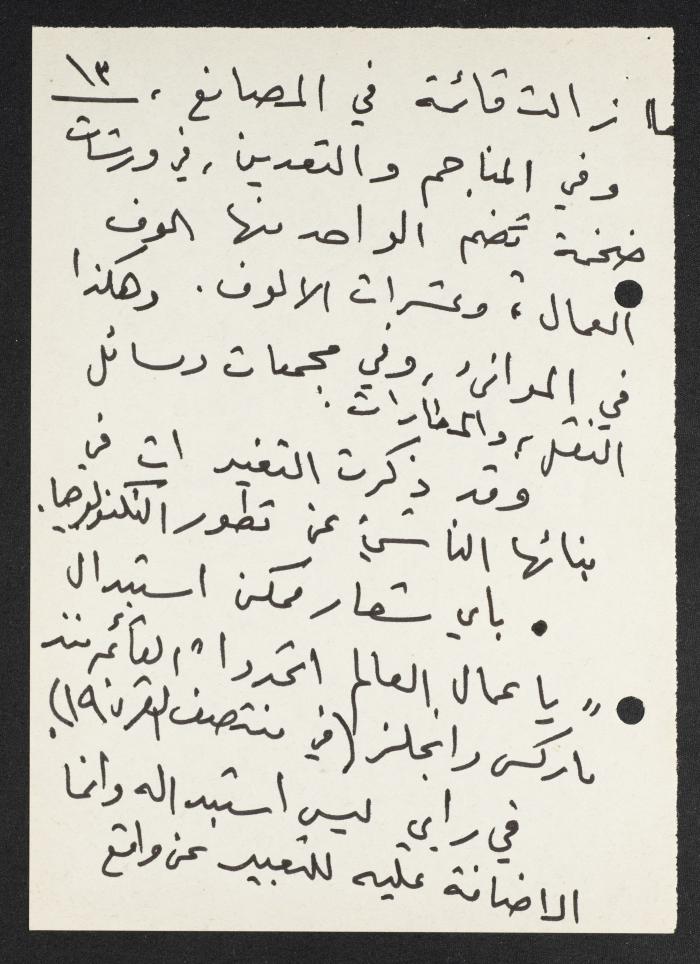 ١٣
ما زالت قائمة في المصانع ،
وفي المناجم والتعدين ، في ورشات
ضخمة تضم الواحد منها الوف
العمال ، وعشرات الالوف . وهكذا
في الموانئ ، وفي مجمعات وسائل
النقل ، والمطارات .
وقد ذكرت التغيرات في
بنائها الناشئ عن تطور التكنولوجيا .
• باي شعار ممكن استبدال
" يا عمال العالم اتحدوا " القائم منذ
ماركس وانجلز (في منتصف القرن ١٩) .
في رايي ليس استبداله وانما
الاضافة عليه للتعبير عن واقع